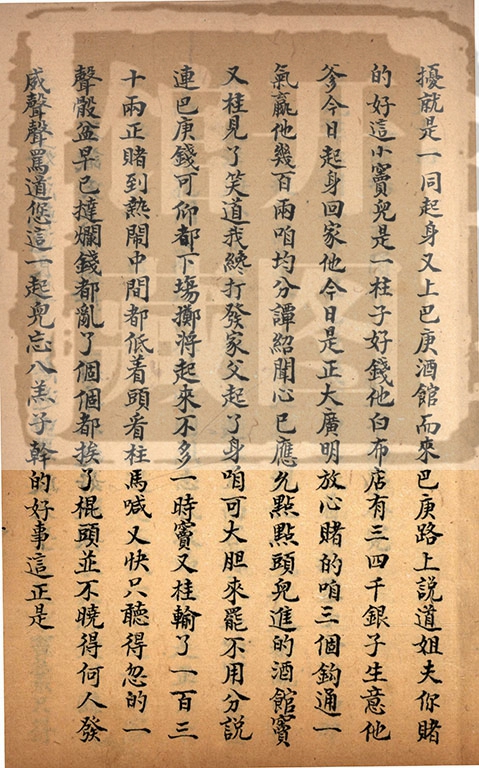 擾就是一同起身又上巴庚酒館而來巴庚路上説道姐夫你賭
的好這小竇兒是一柱子好錢他白布店有三四千銀子生意他
爹今日起身回家他今日是正大廣明放心賭的咱三個鈎通一
氣贏他幾百兩咱均分譚紹聞心已應允點點頭兒進的酒館竇
又桂見了笑道我纔打發家父起了身咱可大胆來罷不用分説
連巴庚錢可仰都下塲擲將起來不多一時竇又桂輸了一百三
十兩正賭到熱鬧中間都低着頭看柱馬喊叉快只聽得忽的一
聲骰盆早已撻爛錢都亂了個個都挨了棍頭並不曉得何人發
威聲聲罵道您這一起兒忘八羔子幹的好事這正是